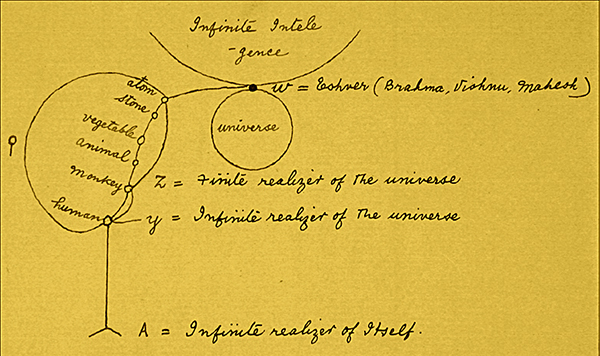 Infinite Intele
-gence
W = Eshver (Brahma, Vishnu, Mahesh)
atom
stone
universe
vegetable
animal
monkey
Z = Finite realizer of the universe
human
y = Infinite realizer of the universe
A = Infinite realizer of Itself.